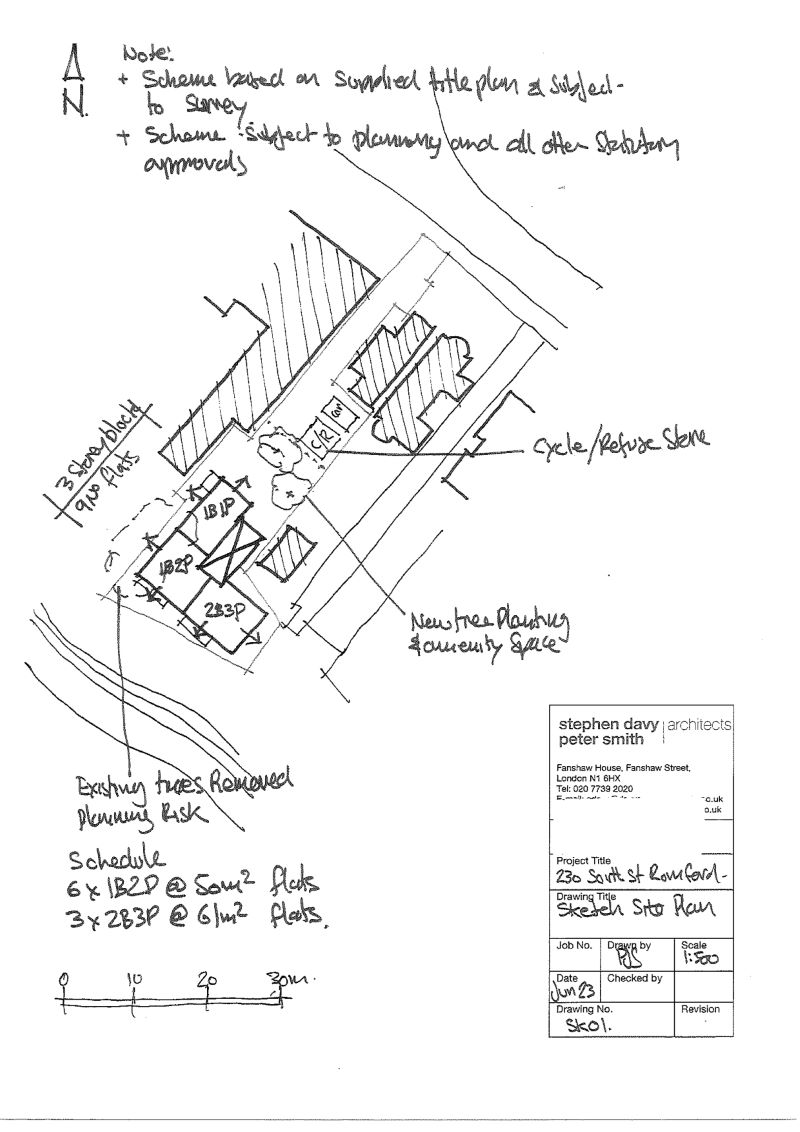 N.
Note:
+ Scheme based on supplied title plan & subject
to survey
+ Scheme subject to planning and all other statutory
approvals
3 Storey block
9 No flats
Car
C/R
Cycle/Refuse Store
1B1P
1B2P
2B3P
New tree Planting
& amenity Space
Existing trees Removed
Planning Risk
Schedule
6 x 1B2P @ 50m² flats
3 x 2B3P @ 61m² flats.
0 10 20 30m.
stephen davy | architects
peter smith
Fanshaw House, Fanshaw Street,
London N1 6HX
Tel: 020 7739 2020
co.uk
o.uk
Project Title
230 South St Romford
Drawing Title
Sketch Site Plan
Job No. Drawn by Scale
PJS 1:500
Date Checked by
Jun 23
Drawing No. Revision
SK01.